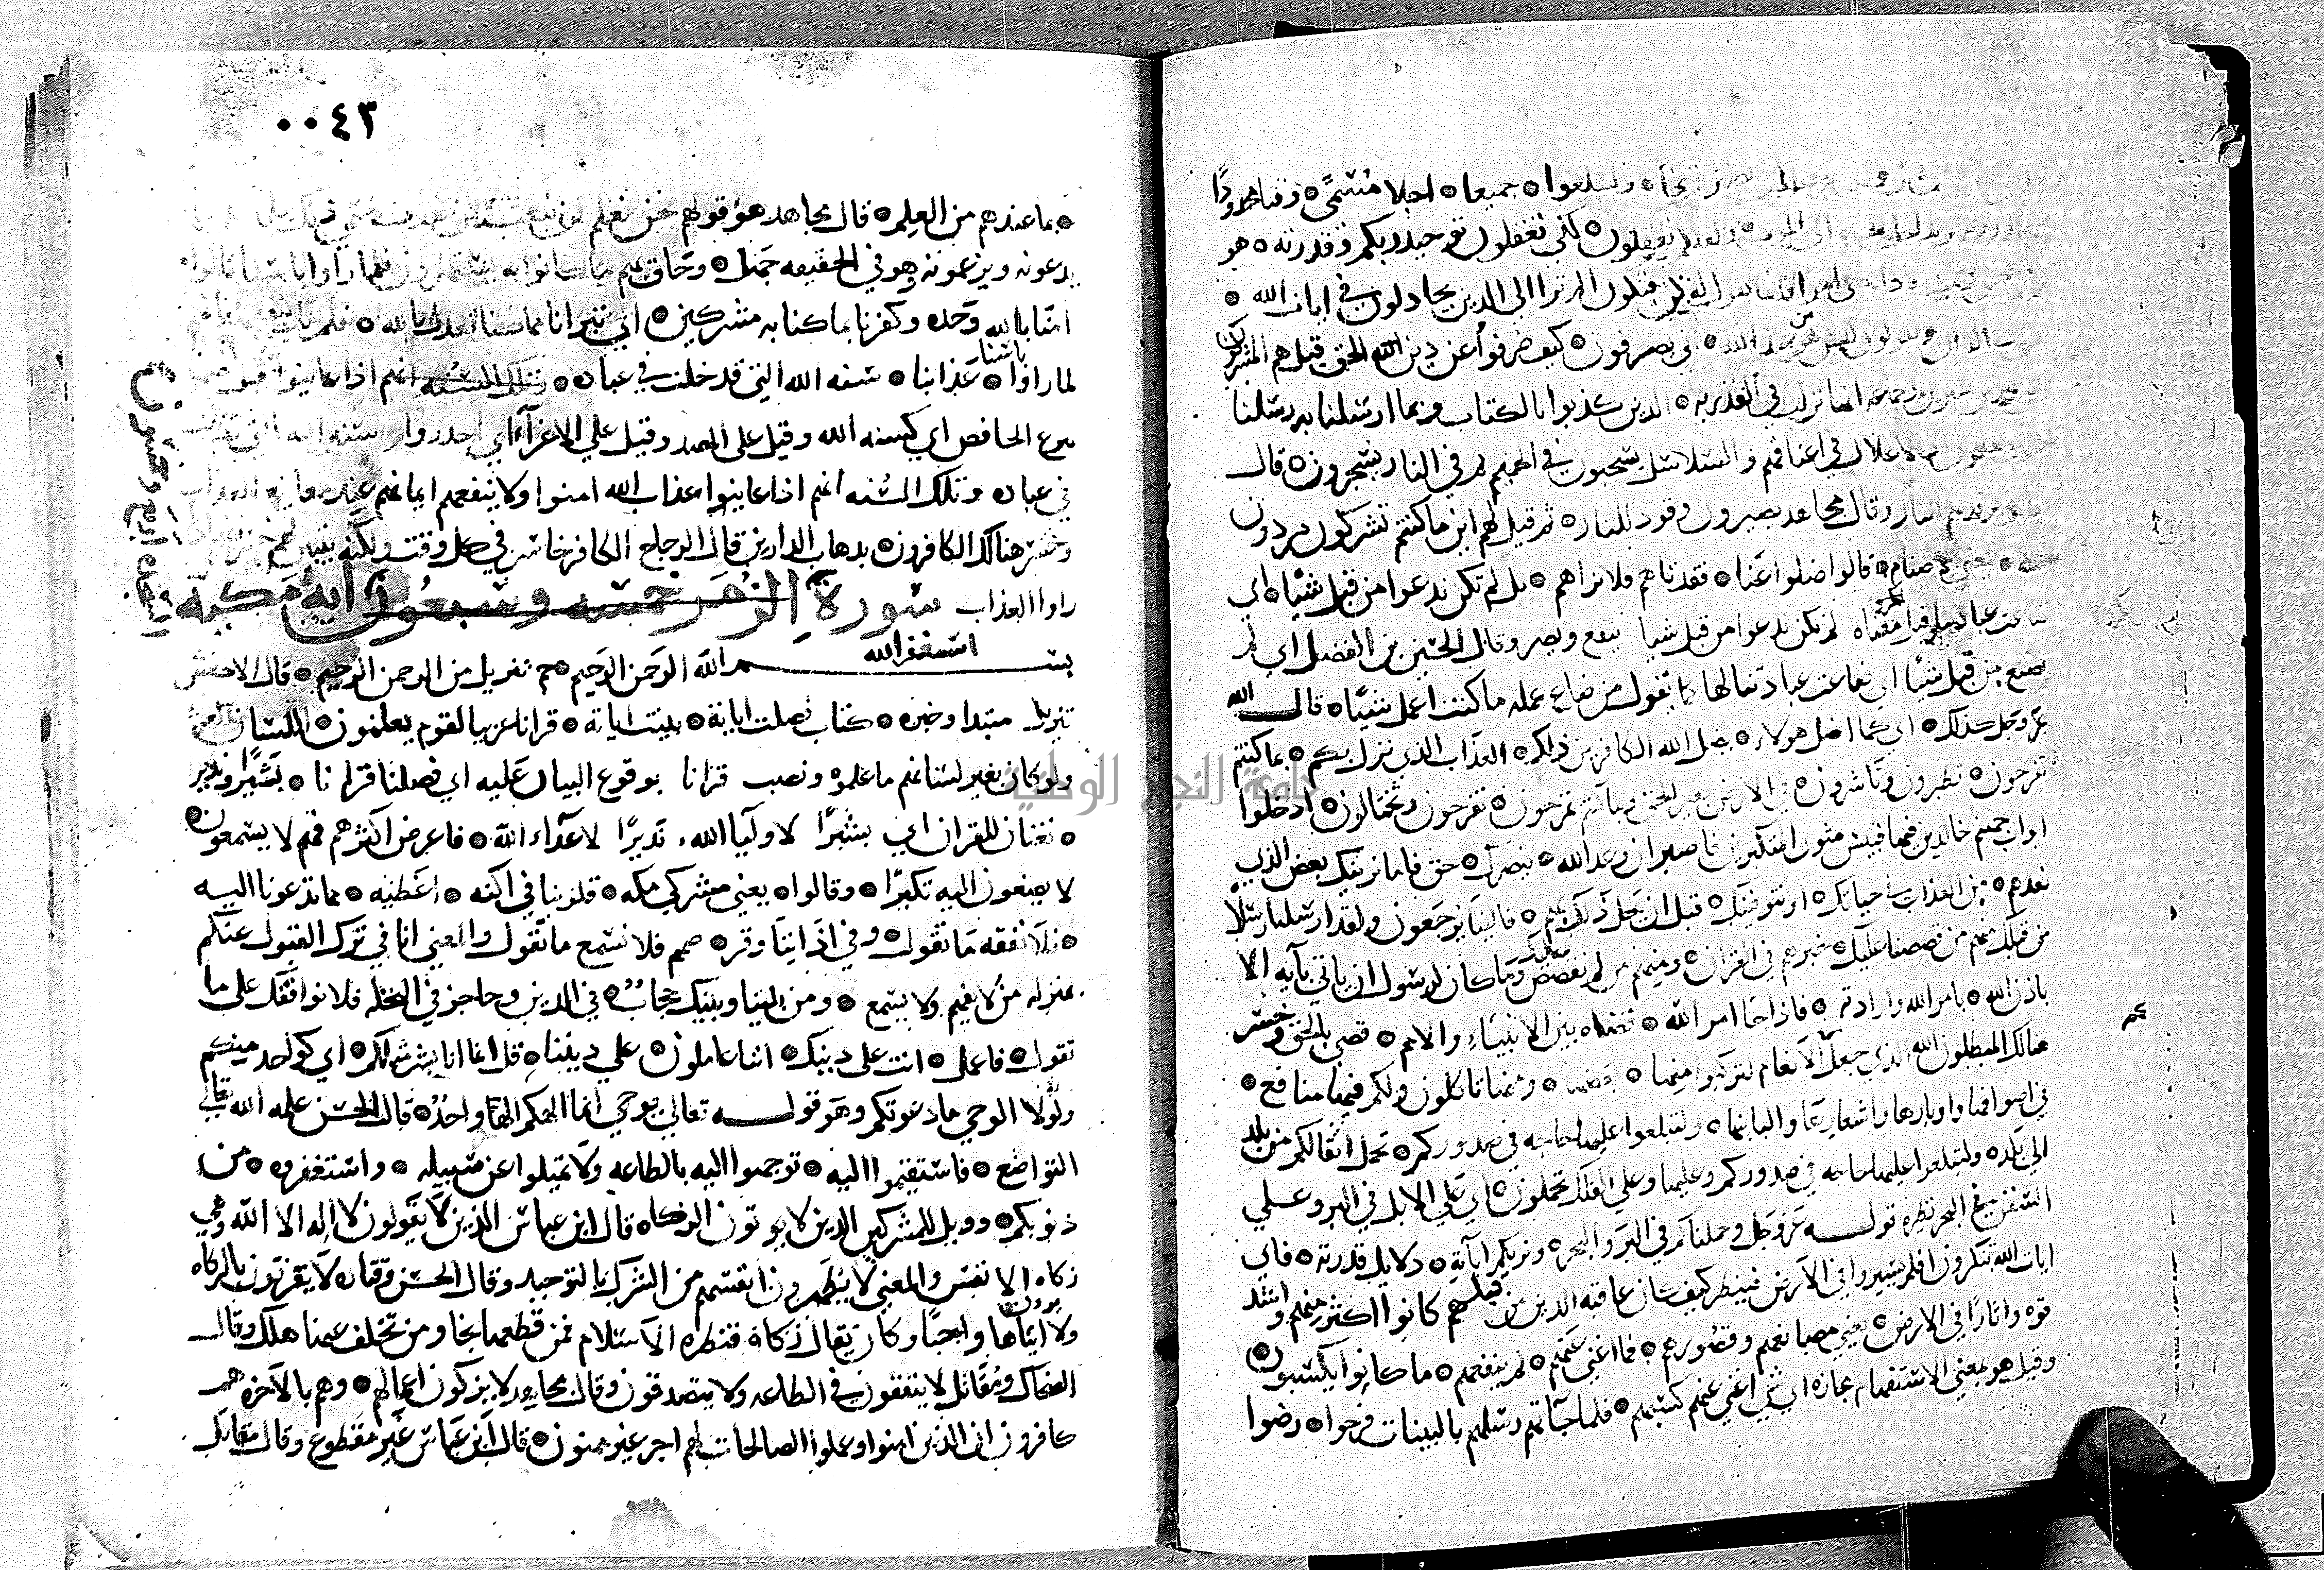 ولتبلغوا ۞ جميعا ۞ اجلا مسمى ۞ وقتا محدودا
تعقلون ۞ لكي تعقلون توحيد ربكم وقدرته ۞ هو
فيكون الم تر الى الذين يجادلون في ايات الله ۞
انى يصرفون ۞ كيف صرفوا عن دين الله الحق قيل هم المشركون
الذين كذبوا بالكتاب وبما ارسلنا به رسلنا
الاغلال في اعناقهم والسلاسل يسحبون في الحميم ثم في النار يسجرون ۞ قال
النار وقال مجاهد يصيرون وقود للنار ۞ ثم قيل لهم اين ما كنتم تشركون من دون
الاصنام ۞ قالوا ضلوا عنا ۞ فقدناهم فلا نراهم ۞ بل لم تكن ندعوا من قبل شيا ۞ اي
لم نكن ندعوا من قبل شيا ينفع ويضر وقال الحسين بن الفضل اي لم
نصنع من قبل شيا اي ضاعت عبادتنا لها كما تقول من ضاع عمله ما كنت اعمل شيئا ۞ قال الله
عز وجل كذلك ۞ اي كما اضل هولاء ۞ يضل الله الكافرين ذلكم ۞ العذاب الذي نزل بكم ۞ بما كنتم
تفرحون ۞ تبطرون وتاشرون ۞ في الارض بغير الحق وبما كنتم تمرحون ۞ تفرحون وتختالون ۞ ادخلوا
ابواب جهنم خالدين فيها فبيس مثوى المتكبرين فاصبر ان وعد الله ۞ بنصرك ۞ حق فاما نرينك بعض الذي
نعدهم ۞ من العذاب في حياتك ۞ او نتوفينك ۞ قبل ان يحل ذلك بهم ۞ فالينا يرجعون ولقد ارسلنا رسلا
من قبلك منهم من قصصنا عليك ۞ خبرهم في القران ۞ ومنهم من لم نقصص عليك وما كان لرسول ان ياتي بآيه الا
باذن الله ۞ بامر الله وارادته ۞ فاذا جا امر الله ۞ قضاه بين الانبياء والامم ۞ قضي بالحق وخسر
هنالك المبطلون الله الذي جعل لكم الانعام لتركبوا منها ۞ بعضها ۞ ومنها تاكلون ولكم فيها منافع ۞
في اصوافها واوبارها واشعارها والبانها ۞ ولتبلغوا عليها حاجه في صدوركم ۞ تحمل اثقالكم من بلد
الى بلد ۞ ولتبلغوا عليها حاجه في صدوركم وعليها وعلي الفلك تحملون ۞ اي علي الابل في البر وعلي
السفن في البحر نظيره قوله عز وجل وحملناكم في البر والبحر ۞ ويريكم آياته ۞ دلايل قدرته ۞ فاي
ايات الله تنكرون افلم يسيروا في الارض فينظر كيف كان عاقبه الذين من قبلهم كانوا اكثر منهم واشد
قوه واثارا في الارض ۞ يعني مصانعهم وقصورهم ۞ فما اغني عنهم ۞ لم ينفعهم ۞ ما كانوا يكسبون ۞
وقيل هو بمعني الاستفهام مجازه اي شي اغني عنهم كسبهم ۞ فلما جآتهم رسلهم بالبينات فرحوا ۞ رضوا
٠٠٤٣
۞ بما عندهم من العلم ۞ قال مجاهد هو قولهم نحن نعلم
يدعونه ويزعمونه وهو في الحقيقه جهل ۞ وحاق بهم ما كانوا به يستهزون فلما راوا باسنا قالوا
امنا بالله وحده وكفرنا بما كنا به مشركين ۞ اي تبرانا مما كنا نعدل بالله ۞ فلم يك ينفعهم
لما راوا باسنا ۞ عذابنا ۞ سنه الله التي قد خلت في عباده ۞ وتلك السنه انهم اذا عاينوا
بنزع الخافض اي كسنه الله وقيل علي المصدر وقيل علي الاغرآء اي احذروا سنه الله التي
في عباده وتلك السنه انهم اذا عاينوا عذاب الله امنوا ولا ينفعهم ايمانهم عند معاينه العذاب
وخسر هنالك الكافرون ۞ بذهاب الدارين قال الزجاج الكافر خاسر في كل وقت ولكنه يتبين لهم
راوا العذاب سورة الزمر خمسه وسبعون آية مكية
استغفر الله
بسم الله الرحمن الرحيم ۞ حم تنزيل من الرحمن الرحيم ۞ قال الاخفش
تنزيل مبتدا وخبره ۞ كتاب فصلت اياته ۞ بينت اياته ۞ قرانا عربيا لقوم يعلمون ۞ اللسان
ولو كان بغير لسانهم ما علموه ونصب قرانا بوقوع البيان عليه اي فصلنا قرانا ۞ بشيرا ونذيرا
۞ نعتان للقران اي بشيرا لاوليآ الله ، نذيرا لاعدآء الله ۞ فاعرض اكثرهم فهم لا يسمعون ۞
لا يصغون اليه تكبرا ۞ وقالوا ۞ يعني مشركي مكه ۞ قلوبنا في اكنه ۞ اغطيه ۞ مما تدعونا اليه
۞ فلا نفقه ما تقول ۞ وفي اذاننا وقر ۞ صمم فلا نسمع ما تقول والمعني انا في ترك القبول عنكم
بمنزله من لا يفهم ولا يسمع ۞ ومن بيننا وبينك حجاب ۞ في الدين وحاجز في النحله فلا نوافقك على ما
تقول ۞ فاعمل ۞ انت على دينك ۞ اننا عاملون ۞ علي ديننا ۞ قل انما انا بشر مثلكم ۞ اي كواحد منكم
ولولا الوحي ما دعوتكم وهو قوله تعالي يوحي الي انما الهكم اله واحد ۞ قال الحسن علمه الله تعالي
التواضع ۞ فاستقيموا اليه ۞ توجهوا اليه بالطاعه ولا تميلوا عن سبيله ۞ واستغفروه ۞ من
ذنوبكم ۞ وويل للمشركين الذين لا يوتون الزكاه ۞ قال ابن عباس الذين لا يقولون لا اله الا الله وهي
زكاه الانفس والمعني لا يطهرون انفسهم من الشرك بالتوحيد وقال الحسن وقتاده لا يقرون بالزكاه
ولا يرون ايتاها واجبا وكان يقال الزكاة قنطره الاسلام فمن قطعها نجا ومن تخلف عنها هلك وقال
الضحاك ومقاتل لا ينفقون في الطاعه ولا يتصدقون وقال مجاهد لا يزكون اعمالهم ۞ وهم بالآخره هم
كافرون ان الذين امنوا وعملوا الصالحات لهم اجر غير ممنون ۞ قال ابن عباس غير مقطوع وقال مقاتل
السجده اربع وخمسون
جامعة النجاح الوطنية